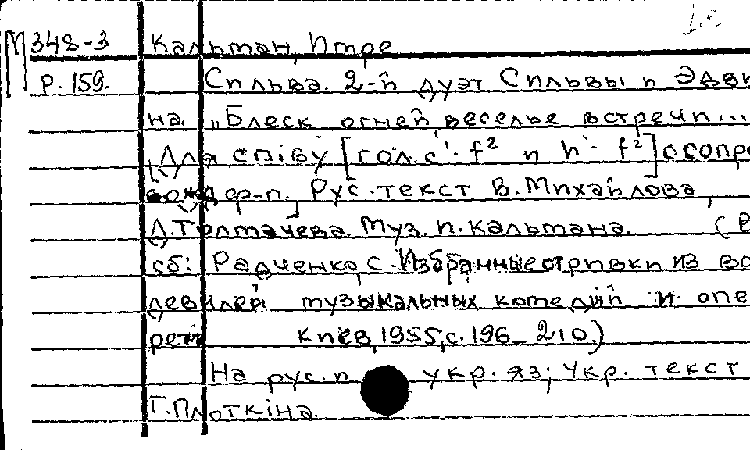 М 348-3 Кальман, Имре
Р. 159. Сильва. 2-й дуэт Сильвы и Эдви
на „Блеск огней, веселье встречи...
Для співу [гол. c¹- f² и h - f²] с сопро
вожд. ф-п. Рус. текст В. Михайлова,
Д. Толмачева. Муз. И. Кальмана. (В
сб: Радченко, С. Избранные отрывки из во
девилей музыкальных комедий и опе
ретт Киев, 1955, с. 196-210.)
На рус. и укр. яз; Укр. текст
Г. Плоткіна.